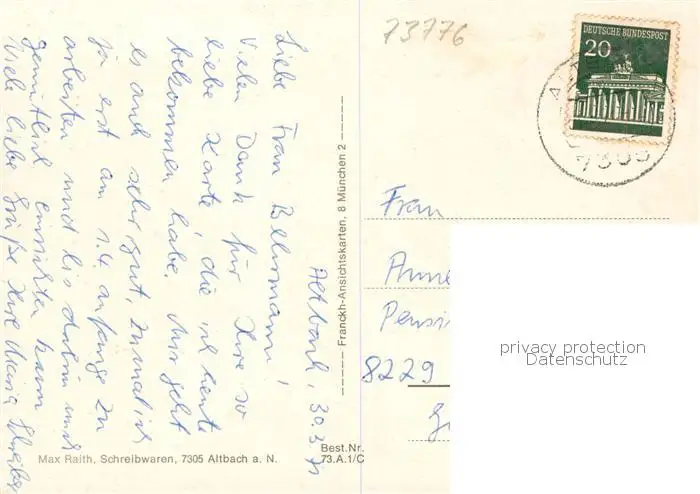 Altbach, 30.3.71
Liebe Frau Bellmann!
Vielen Dank für Ihre so
liebe Karte, die ich heute
bekommen habe. Mir geht
es auch sehr gut, zumal ich
ja erst am 1.4. anfange zu
arbeiten und bis dahin mich
gemütlich einrichten kann
Viele liebe Grüße Ihre Maria
Max Raith, Schreibwaren, 7305 Altbach a. N.
Best.Nr.
73.A.1/C
Franckh-Ansichtskarten, 8 München 2
73776
DEUTSCHE BUNDESPOST
20
7305
Frau
Anne
Pensi
8229
privacy protection
Datenschutz